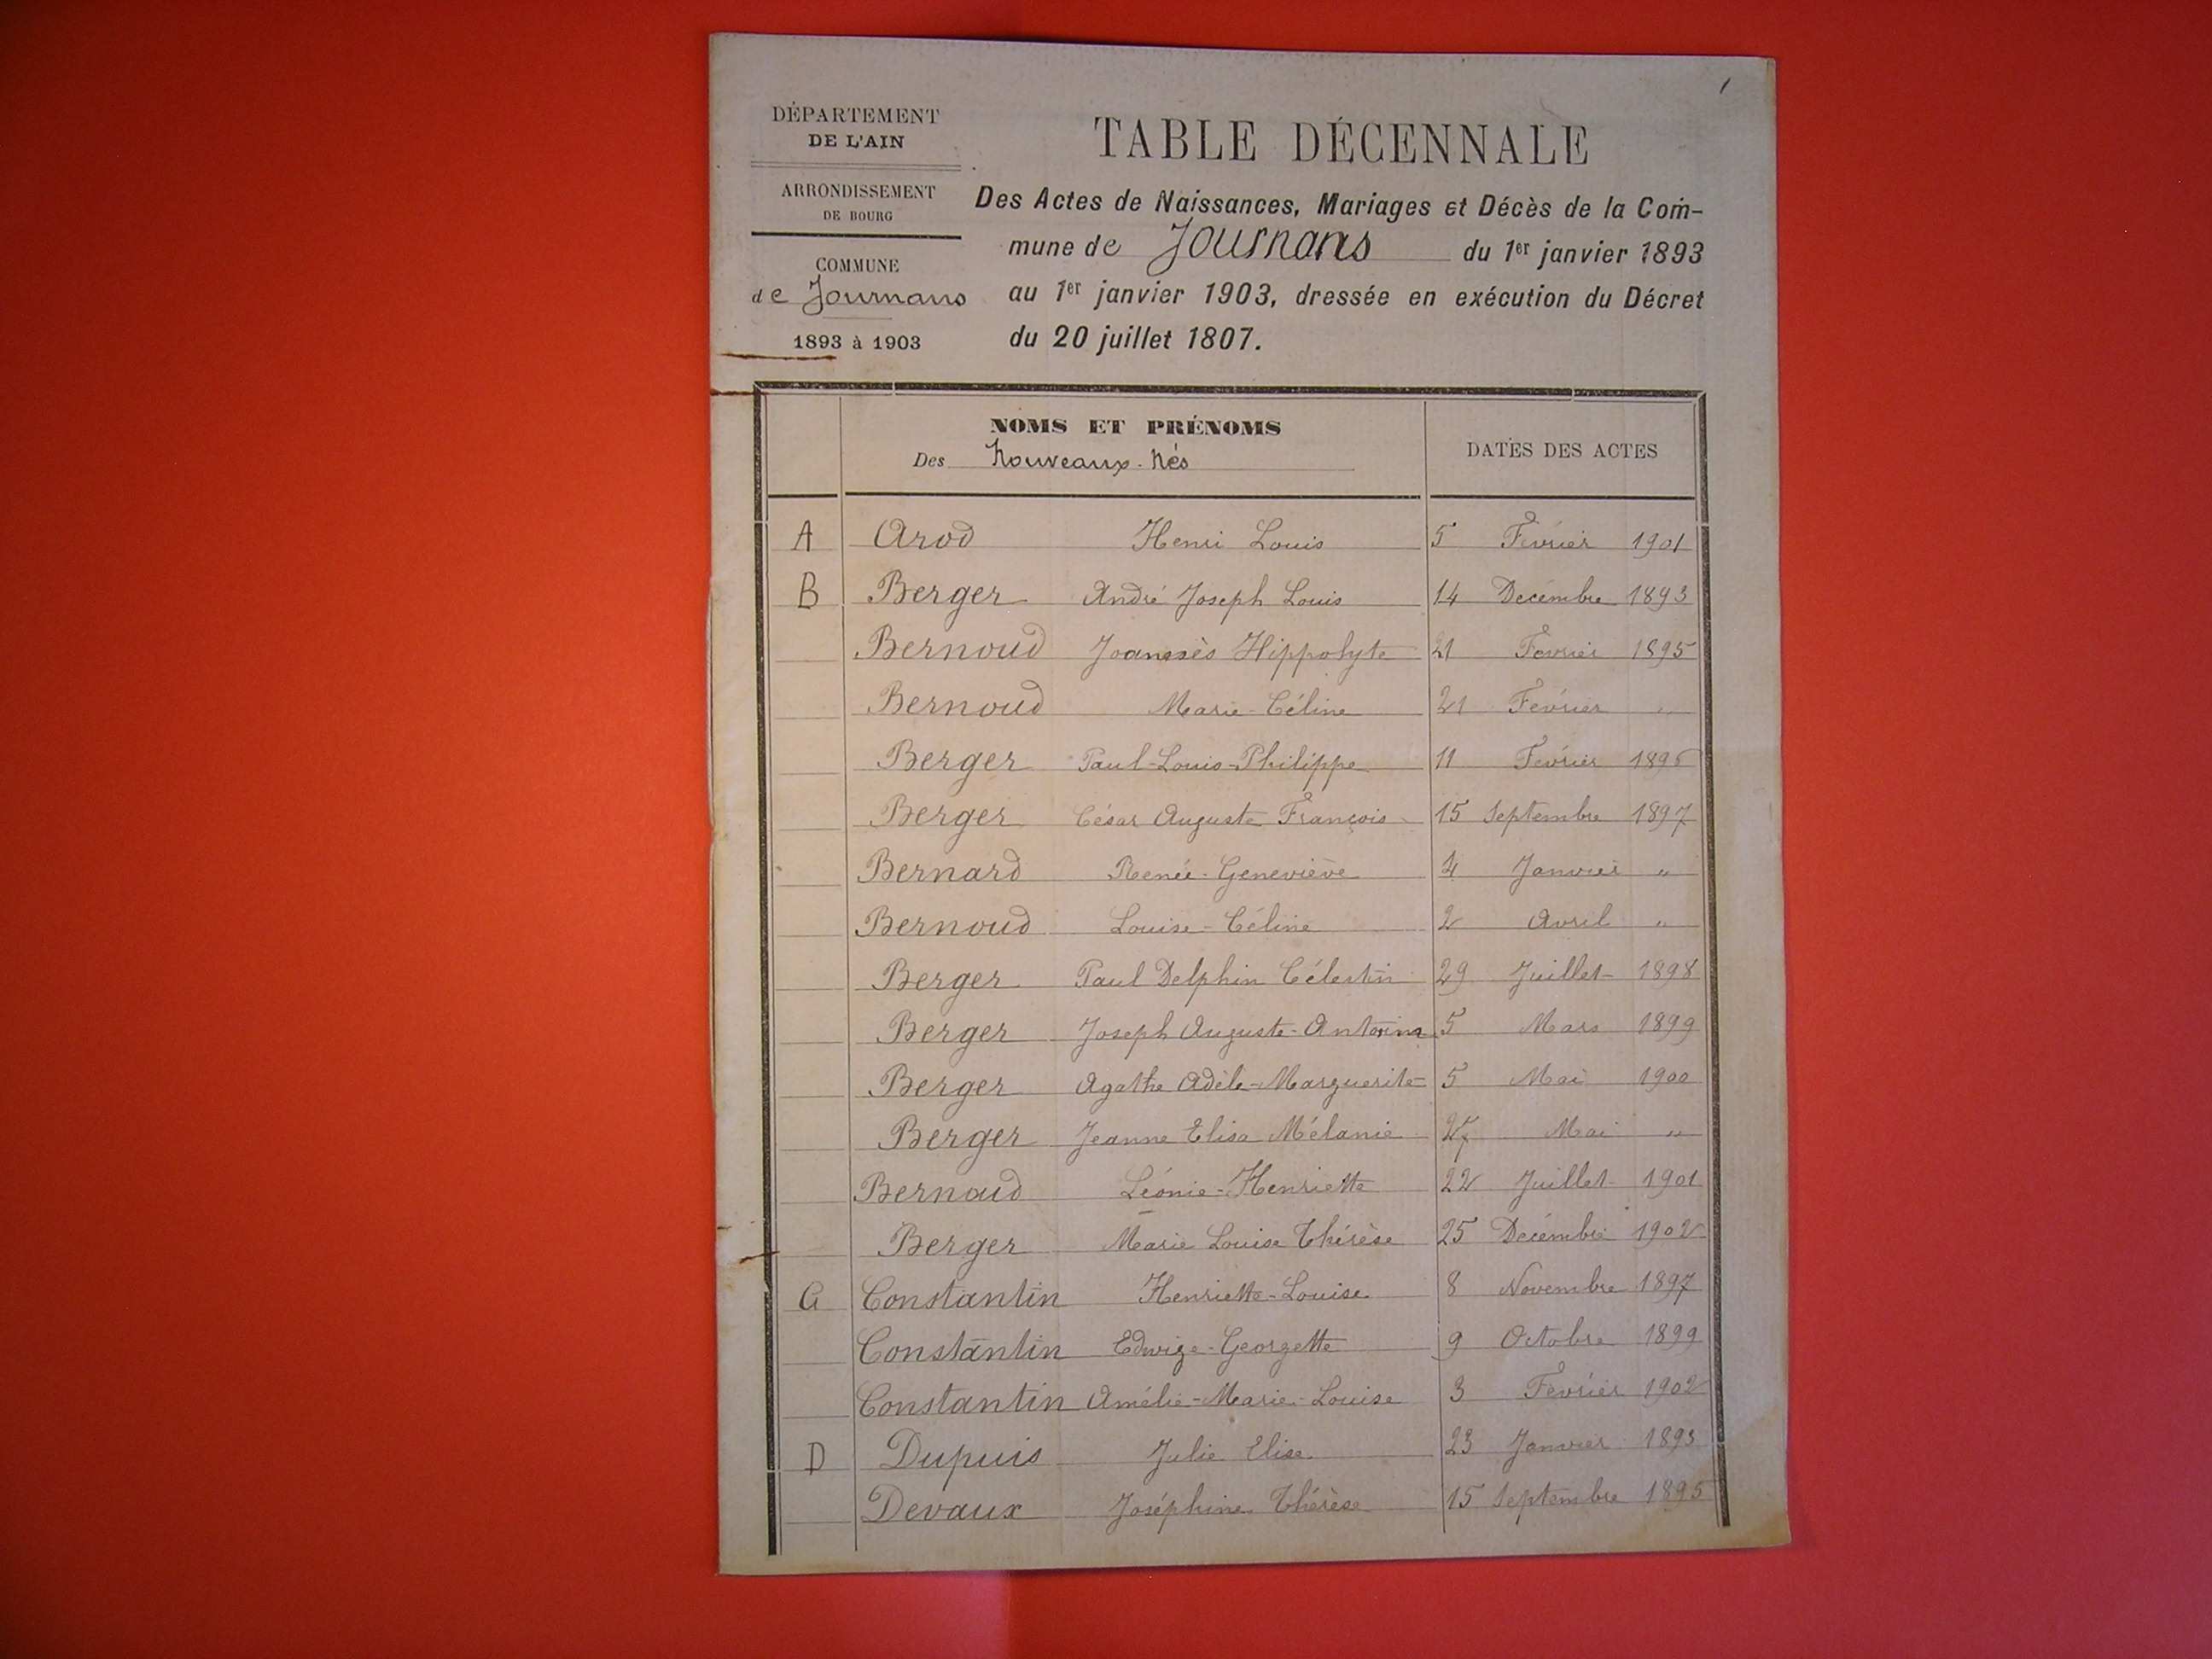 1
DÉPARTEMENT
DE L'AIN
ARRONDISSEMENT
DE BOURG
COMMUNE
de Journans
1893 à 1903
TABLE DÉCENNALE
Des Actes de Naissances, Mariages et Décès de la Com-
mune de Journans du 1er janvier 1893
au 1er janvier 1903, dressée en exécution du Décret
du 20 juillet 1807.
NOMS ET PRÉNOMS
Des Nouveaux-Nés
DATES DES ACTES
A Arod Henri Louis 5 Février 1901
B Berger André Joseph Louis 14 Décembre 1893
Bernoud Joannès Hippolyte 21 Février 1895
Bernoud Marie-Céline 21 Février "
Berger Paul-Louis-Philippe 11 Février 1896
Berger César Auguste François 15 Septembre 1897
Bernard Renée-Geneviève 4 Janvier "
Bernoud Louise-Céline 2 Avril "
Berger Paul Delphin Célestin 29 Juillet 1898
Berger Joseph Auguste-Antoine 5 Mars 1899
Berger Agathe Adèle-Marguerite 5 Mai 1900
Berger Jeanne Elisa Mélanie Mai "
Bernaud Léonie-Henriette 22 Juillet 1901
Berger Marie Louise Thérèse 25 Décembre 1902
C Constantin Henriette-Louise 8 Novembre 1897
Constantin Edwige-Georgette 9 Octobre 1899
Constantin Amélie-Marie-Louise 3 Février 1902
D Dupuis Julie Elise 23 Janvier 1893
Devaux Joséphine Thérèse 15 Septembre 1895